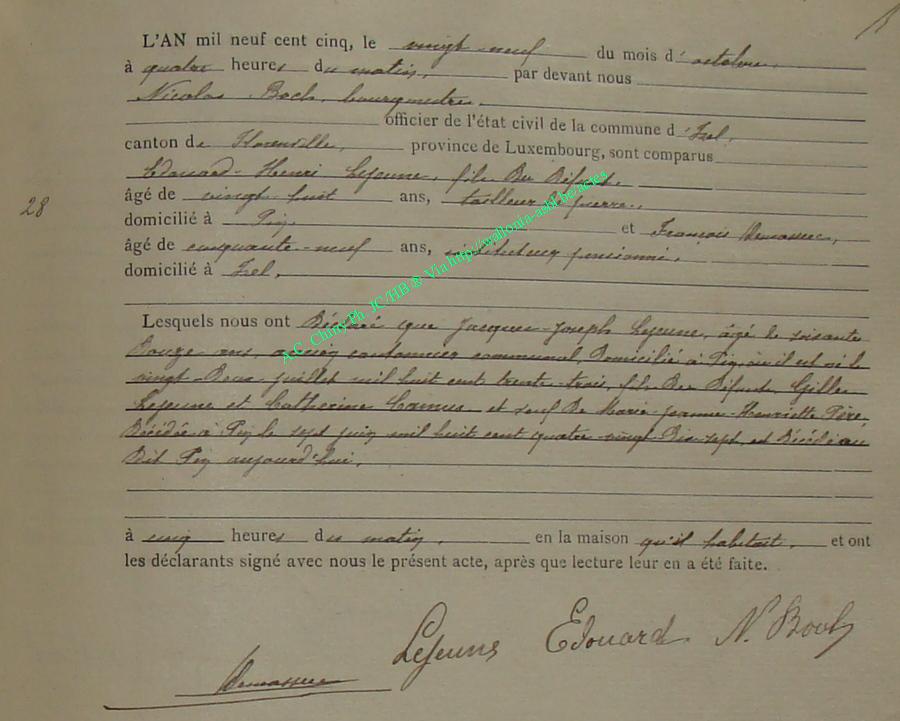 L'AN mil neuf cent cinq, le vingt-neuf du mois d'octobre,
à quatre heures du matin, par devant nous
Nicolas Boch, bourgmestre,
officier de l'état civil de la commune d'Izel,
canton de Florenville, province de Luxembourg, sont comparus
Edouard-Henri Lejeune, fils du défunt,
âgé de vingt huit ans, tailleur de pierre,
domicilié à Pin, et François
28
âgé de cinquante-neuf ans, instituteur pensionné,
domicilié à Izel,
A.C. Chiny Ph. JC/HB & Via http://wallonia-asbl.be/actes
Lesquels nous ont déclaré que Jacques-Joseph Lejeune, âgé de soixante
douze ans, ancien cantonnier communal domicilié à Pin, où il est né le
vingt-deux juillet mil huit cent trente-trois, fils des défunts Gilles
Lejeune et Catherine Camus et veuf de Marie-Jeanne-Henriette
décédée à Pin le sept juin mil huit cent quatre-vingt dix-sept, est décédé au
dit Pin aujourd'hui,
à cinq heures du matin, en la maison qu'il habitait, et ont
les déclarants signé avec nous le présent acte, après que lecture leur en a été faite.
Lejeune Edouard N. Boch